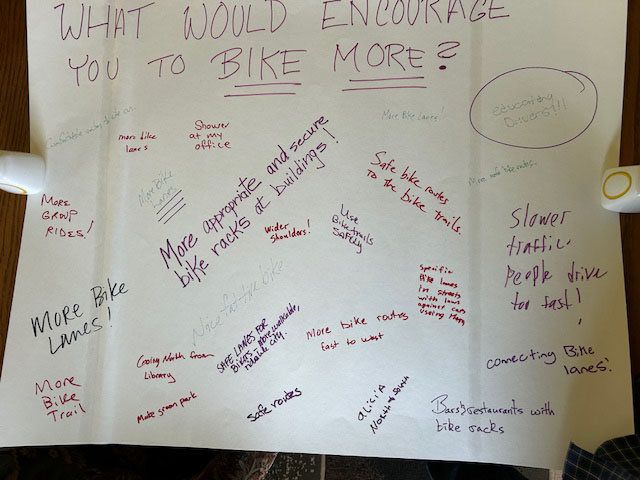 WHAT WOULD ENCOURAGE
YOU TO BIKE MORE?
more bike
lanes
Shower
at my
office
More bike lanes!
educating
Drivers!!!
More safe bike routes.
More bike
lanes
More appropriate and secure
bike racks at buildings!
Safe bike routes
to the bike trails.
MORE
GROUP
RIDES!
Wider
shoulders!
Use
Bike trails
Safely
Slower
traffic.
People drive
too fast!
Specific
Bike lanes
in streets
with laws
against cars
using them
Nice fat-tire bike
More Bike
Lanes!
SAFE LANES FOR
BIKES, more walkable,
rideable city.
More bike routes
East to west
Going North from
Library
connecting Bike
lanes!
More
Bike
Trail
Make green park
Safe routes
ALICIA
North & South
Bars & restaurants with
bike racks